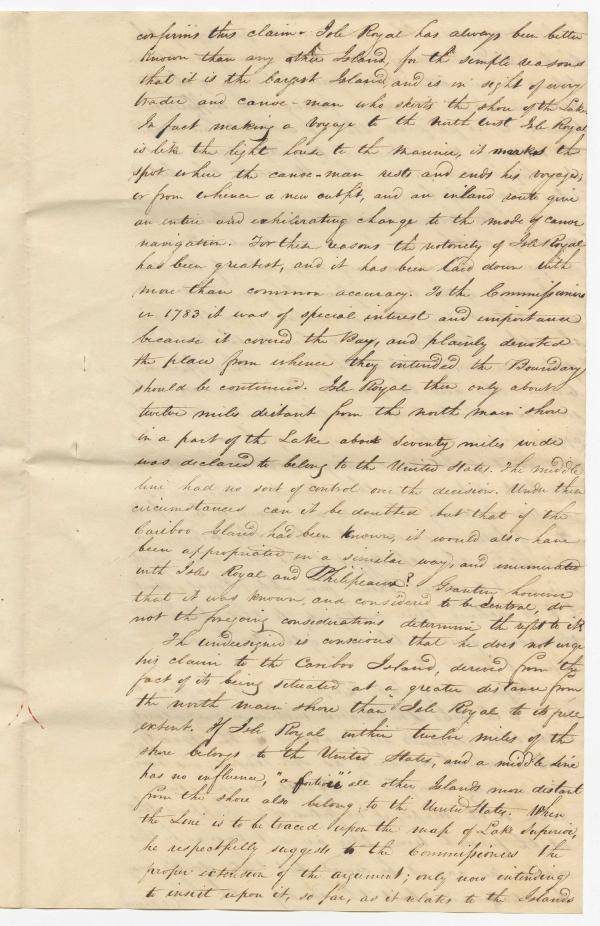 confirms this claim. Isle Royal has always been better
known than any other Island, for the simple reasons
that it is the largest Island, and is in sight of every
trader and canoe-man who skirts the shore of the Lake.
In fact making a voyage to the north west Isle Royal
is like the light house to the mariner, it marks the
spot where the canoe-man rests and ends his voyage;
or from whence a new outfit, and an inland route give
an entire and exhilerating change to the mode of canoe
navigation. For these reasons the notoriety of Isle Royal
has been greatest, and it has been laid down with
more than common accuracy. To the Commissioners
in 1783 it was of special interest and importance
because it covered the Bay, and plainly denoted
the place from whence they intended the Boundary
should be continued. Isle Royal then only about
twelve miles distant from the north main shore
in a part of the Lake about seventy miles wide
was declared to belong to the United States. The middle
line had no sort of control over the decision. Under these
circumstances can it be doubted but that if the
Cariboo Island had been known, it would also have
been appropriated in a similar way, and enumerated
with Isles Royal and Philipeaux? Granting however
that it was known, and considered to be central, do
not the foregoing considerations determine the right to it?
The undersigned is conscious that he does not urge
his claim to the Cariboo Island, derived from the
fact of its being situated at a greater distance from
the north main shore than Isle Royal to its full
extent. If Isle Royal within twelve miles of the
shore belongs to the United States, and a middle line
has no influence, "a fortiori" all other Islands more distant
from the shore also belong to the United States. When
the Line is to be traced upon the map of Lake Superior,
he respectfully suggests to the Commissioners the
proper extension of the argument; only now intending
to insist upon it, so far, as it relates to the Islands